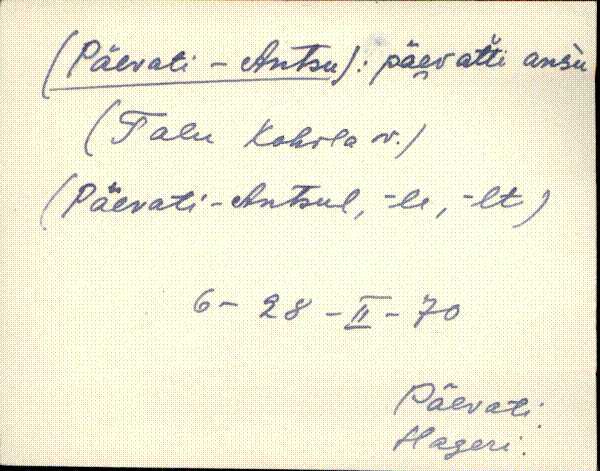 (Päevati - Antsu): päevatti ansu
(Talu Kohila v.)
(Päevati-Antsul, -le, -lt)
6 - 28 - II - 70
Päevati.
Hageri.